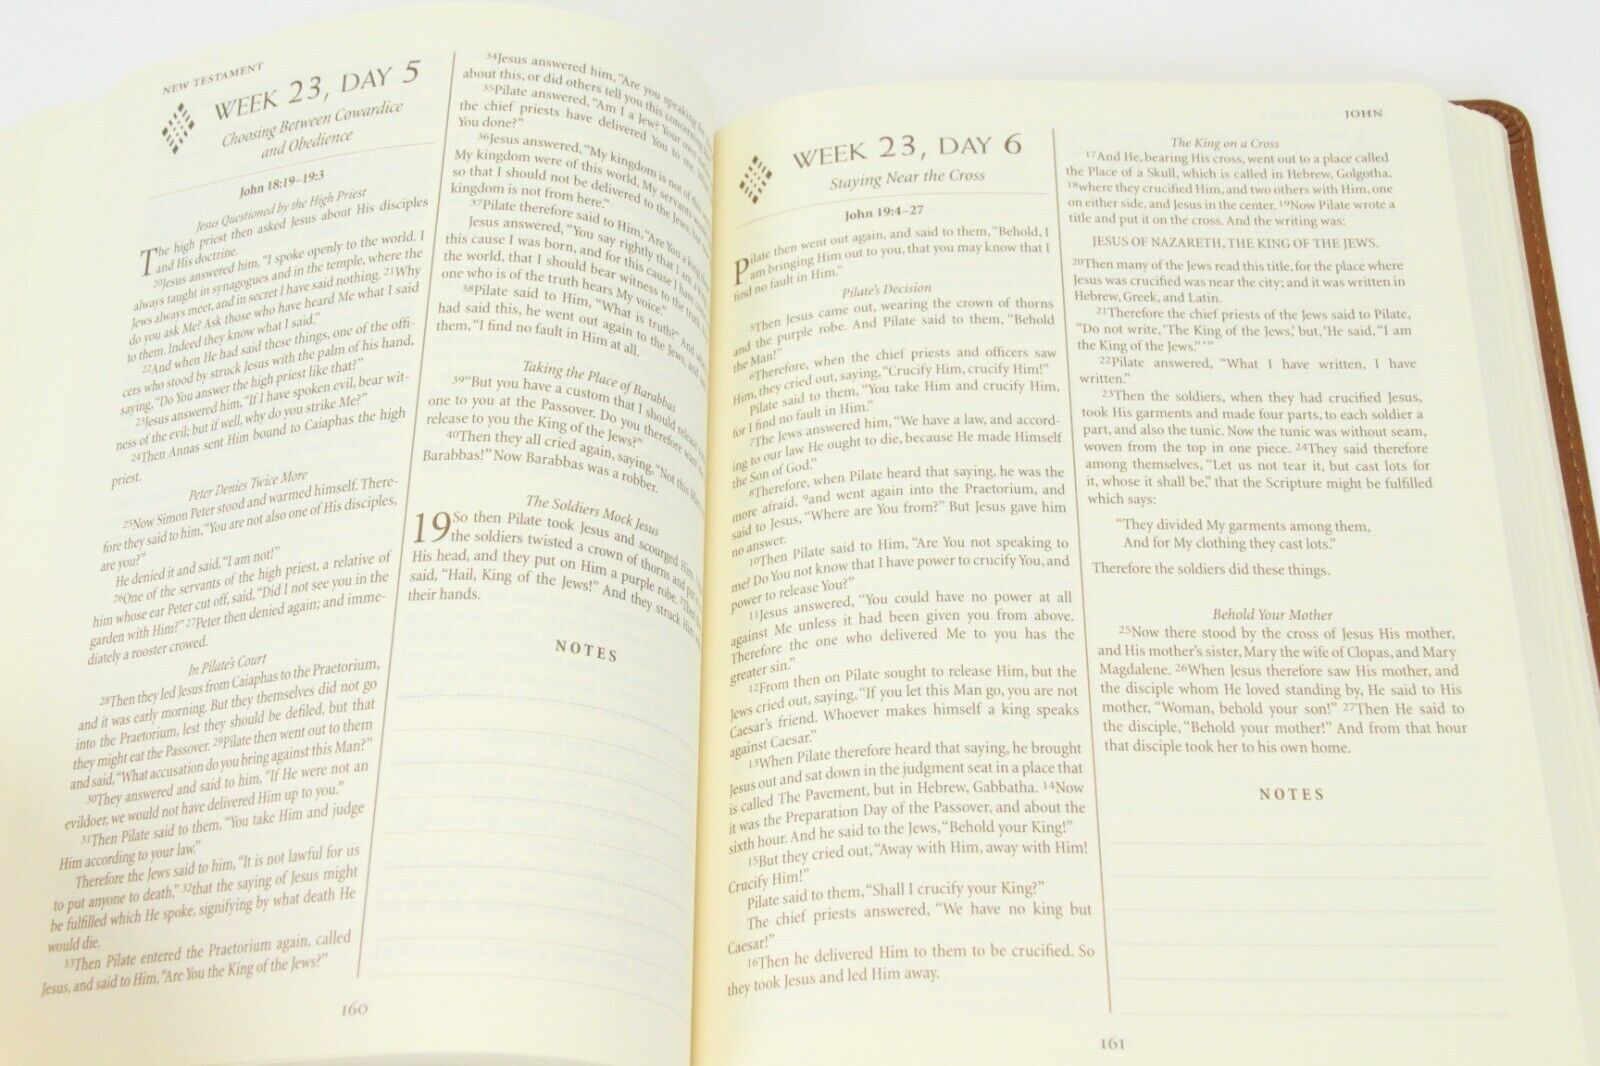 NEW TESTAMENT
WEEK 23, DAY 5
Choosing Between Cowardice
and Obedience
John 18:19–19:3
Jesus Questioned by the High Priest
The high priest then asked Jesus about His disciples
and His doctrine.
20Jesus answered him, “I spoke openly to the world. I
always taught in synagogues and in the temple, where the
Jews always meet, and in secret I have said nothing. 21Why
do you ask Me? Ask those who have heard Me what I said
to them. Indeed they know what I said.”
22And when He had said these things, one of the offi-
cers who stood by struck Jesus with the palm of his hand,
saying, “Do You answer the high priest like that?”
23Jesus answered him, “If I have spoken evil, bear wit-
ness of the evil; but if well, why do you strike Me?”
24Then Annas sent Him bound to Caiaphas the high
priest.
Peter Denies Twice More
25Now Simon Peter stood and warmed himself. There-
fore they said to him, “You are not also one of His disciples,
are you?”
He denied it and said, “I am not!”
26One of the servants of the high priest, a relative of
him whose ear Peter cut off, said, “Did I not see you in the
garden with Him?” 27Peter then denied again; and imme-
diately a rooster crowed.
In Pilate’s Court
28Then they led Jesus from Caiaphas to the Praetorium,
and it was early morning. But they themselves did not go
into the Praetorium, lest they should be defiled, but that
they might eat the Passover. 29Pilate then went out to them
and said, “What accusation do you bring against this Man?”
30They answered and said to him, “If He were not an
evildoer, we would not have delivered Him up to you.”
31Then Pilate said to them, “You take Him and judge
Him according to your law.”
Therefore the Jews said to him, “It is not lawful for us
to put anyone to death,” 32that the saying of Jesus might
be fulfilled which He spoke, signifying by what death He
would die.
33Then Pilate entered the Praetorium again, called
Jesus, and said to Him, “Are You the King of the Jews?”
34Jesus answered him, “Are you speaking for
about this, or did others tell you this concerning
35Pilate answered, “Am I a Jew? Your own
the chief priests have delivered You to me. What
You done?”
36Jesus answered, “My kingdom is not of this
My kingdom were of this world, My servants would
so that I should not be delivered to the Jews; but
kingdom is not from here.”
37Pilate therefore said to Him, “Are You a king
Jesus answered, “You say rightly that I am a king.
this cause I was born, and for this cause I have
the world, that I should bear witness to the truth.
one who is of the truth hears My voice.”
38Pilate said to Him, “What is truth?” And when
had said this, he went out again to the Jews, and said
them, “I find no fault in Him at all.
Taking the Place of Barabbas
39“But you have a custom that I should release
one to you at the Passover. Do you therefore want
release to you the King of the Jews?”
40Then they all cried again, saying, “Not this Man
Barabbas!” Now Barabbas was a robber.
The Soldiers Mock Jesus
19 So then Pilate took Jesus and scourged Him.
the soldiers twisted a crown of thorns and put
His head, and they put on Him a purple robe. 3Then
said, “Hail, King of the Jews!” And they struck Him
their hands.
NOTES
160
JOHN
WEEK 23, DAY 6
Staying Near the Cross
John 19:4–27
Pilate then went out again, and said to them, “Behold, I
am bringing Him out to you, that you may know that I
find no fault in Him.”
Pilate’s Decision
5Then Jesus came out, wearing the crown of thorns
and the purple robe. And Pilate said to them, “Behold
the Man!”
6Therefore, when the chief priests and officers saw
Him, they cried out, saying, “Crucify Him, crucify Him!”
Pilate said to them, “You take Him and crucify Him,
for I find no fault in Him.”
7The Jews answered him, “We have a law, and accord-
ing to our law He ought to die, because He made Himself
the Son of God.”
8Therefore, when Pilate heard that saying, he was the
more afraid, 9and went again into the Praetorium, and
said to Jesus, “Where are You from?” But Jesus gave him
no answer.
10Then Pilate said to Him, “Are You not speaking to
me? Do You not know that I have power to crucify You, and
power to release You?”
11Jesus answered, “You could have no power at all
against Me unless it had been given you from above.
Therefore the one who delivered Me to you has the
greater sin.”
12From then on Pilate sought to release Him, but the
Jews cried out, saying, “If you let this Man go, you are not
Caesar’s friend. Whoever makes himself a king speaks
against Caesar.”
13When Pilate therefore heard that saying, he brought
Jesus out and sat down in the judgment seat in a place that
is called The Pavement, but in Hebrew, Gabbatha. 14Now
it was the Preparation Day of the Passover, and about the
sixth hour. And he said to the Jews, “Behold your King!”
15But they cried out, “Away with Him, away with Him!
Crucify Him!”
Pilate said to them, “Shall I crucify your King?”
The chief priests answered, “We have no king but
Caesar!”
16Then he delivered Him to them to be crucified. So
they took Jesus and led Him away.
The King on a Cross
17And He, bearing His cross, went out to a place called
the Place of a Skull, which is called in Hebrew, Golgotha,
18where they crucified Him, and two others with Him, one
on either side, and Jesus in the center. 19Now Pilate wrote a
title and put it on the cross. And the writing was:
JESUS OF NAZARETH, THE KING OF THE JEWS.
20Then many of the Jews read this title, for the place where
Jesus was crucified was near the city; and it was written in
Hebrew, Greek, and Latin.
21Therefore the chief priests of the Jews said to Pilate,
“Do not write, ‘The King of the Jews,’ but, ‘He said, “I am
the King of the Jews.” ’ ”
22Pilate answered, “What I have written, I have
written.”
23Then the soldiers, when they had crucified Jesus,
took His garments and made four parts, to each soldier a
part, and also the tunic. Now the tunic was without seam,
woven from the top in one piece. 24They said therefore
among themselves, “Let us not tear it, but cast lots for
it, whose it shall be,” that the Scripture might be fulfilled
which says:
“They divided My garments among them,
And for My clothing they cast lots.”
Therefore the soldiers did these things.
Behold Your Mother
25Now there stood by the cross of Jesus His mother,
and His mother’s sister, Mary the wife of Clopas, and Mary
Magdalene. 26When Jesus therefore saw His mother, and
the disciple whom He loved standing by, He said to His
mother, “Woman, behold your son!” 27Then He said to
the disciple, “Behold your mother!” And from that hour
that disciple took her to his own home.
NOTES
161